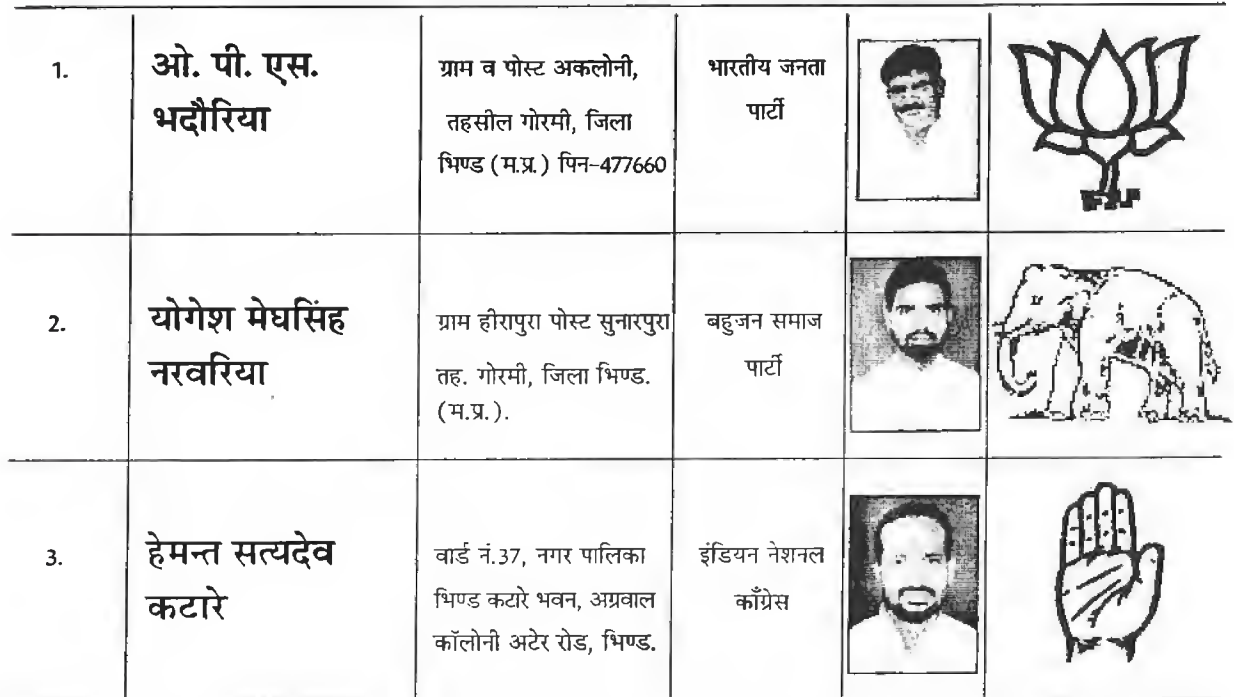 1.
ओ. पी. एस.
भदौरिया
ग्राम व पोस्ट अकलोनी,
तहसील गोरमी, जिला
भिण्ड (म.प्र.) पिन-477660
भारतीय जनता
पार्टी
2.
योगेश मेघसिंह
नरवरिया
ग्राम हीरापुरा पोस्ट सुनारपुरा
तह. गोरमी, जिला भिण्ड.
(म.प्र.).
बहुजन समाज
पार्टी
3.
हेमन्त सत्यदेव
कटारे
वार्ड नं.37, नगर पालिका
भिण्ड कटारे भवन, अग्रवाल
कॉलोनी अटेर रोड, भिण्ड.
इंडियन नेशनल
काँग्रेस